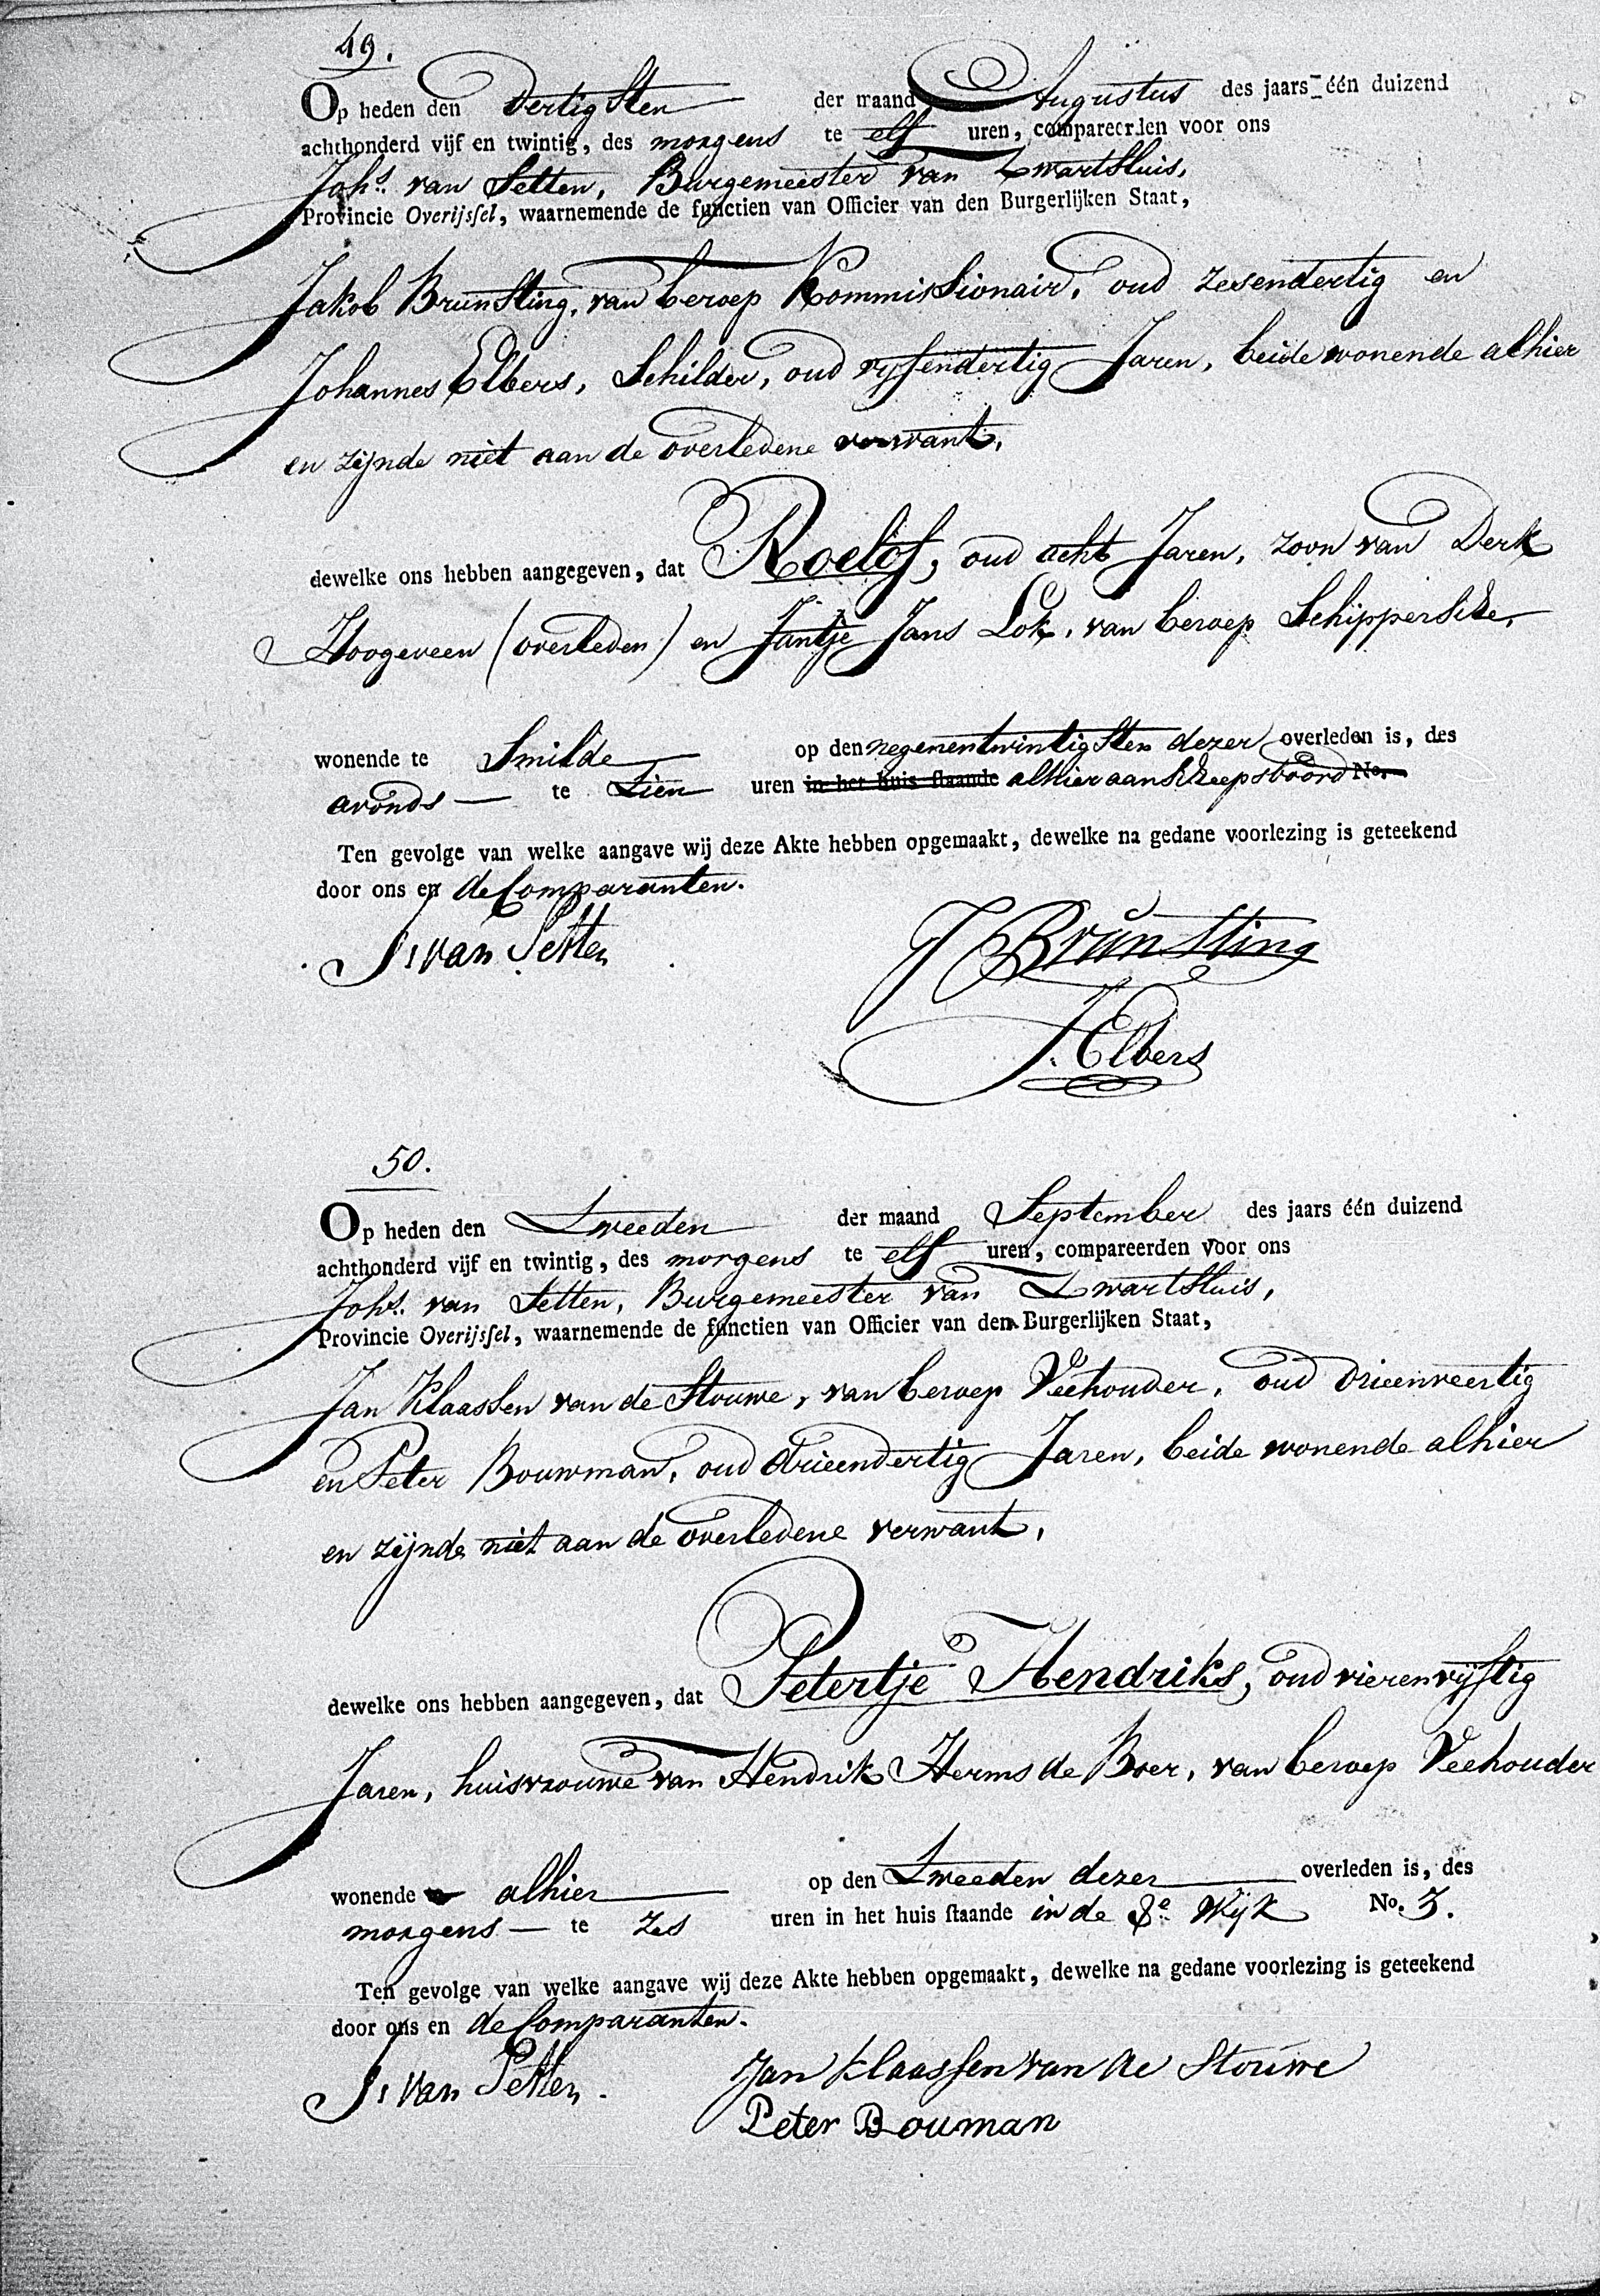 49.
Op heden den dertigsten der maand Augustus des jaars één duizend
achthonderd vijf en twintig, des morgens te elf uren, compareerden voor ons
Johs. van Setten, Burgemeester van Zwartsluis,
Provincie Overijssel, waarnemende de functien van Officier van den Burgerlijken Staat,
Jakob Brunsting, van beroep Kommissionair, oud zesendertig en
Johannes Elbers, Schilder, oud vyfendertig Jaren, beide wonende alhier
en zijnde niet aan de overledene verwant,
dewelke ons hebben aangegeven, dat Roelof, oud acht Jaren, zoon van Derk
Hoogeveen (overleden) en Jantje Jans Lok, van beroep Schipperske,
wonende te Smilde op den negenentwintigsten dezer overleden is, des
avonds te tien uren in het huis staande alhier aan Scheepsboord No.
Ten gevolge van welke aangave wij deze Akte hebben opgemaakt, dewelke na gedane voorlezing is geteekend
door ons en de Comparanten.
Js van Setten J Brunsting
J. Elbers
50.
Op heden den tweeden der maand September des jaars één duizend
achthonderd vijf en twintig, des morgens te elf uren, compareerden voor ons
Johs. van Setten, Burgemeester van Zwartsluis,
Provincie Overijssel, waarnemende de functien van Officier van den Burgerlijken Staat,
Jan Klaassen van de Stouwe, van beroep Veehouder, oud drieenveertig
en Peter Bouwman, oud drieendertig Jaren, beide wonende alhier
en zijnde niet aan de overledene verwant,
dewelke ons hebben aangegeven, dat Petertje Hendriks, oud vierenvijftig
Jaren, huisvrouwe van Hendrik Herms de Boer, van beroep Veehouder
wonende alhier op den tweeden dezer overleden is, des
morgens te zes uren in het huis staande in de 8e Wijk No. 3.
Ten gevolge van welke aangave wij deze Akte hebben opgemaakt, dewelke na gedane voorlezing is geteekend
door ons en de Comparanten.
Js van Setten. Jan Klaassen van de Stouwe
Peter Bouman